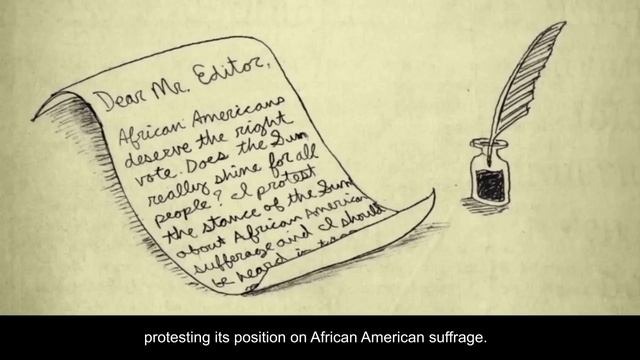 Dear Mr. Editor,
African Americans
deserve the right
vote. Does the Sun
really shine for all
people? I protest
the stance of the Sun
about African American
sufferage and I should
be heard in
protesting its position on African American suffrage.